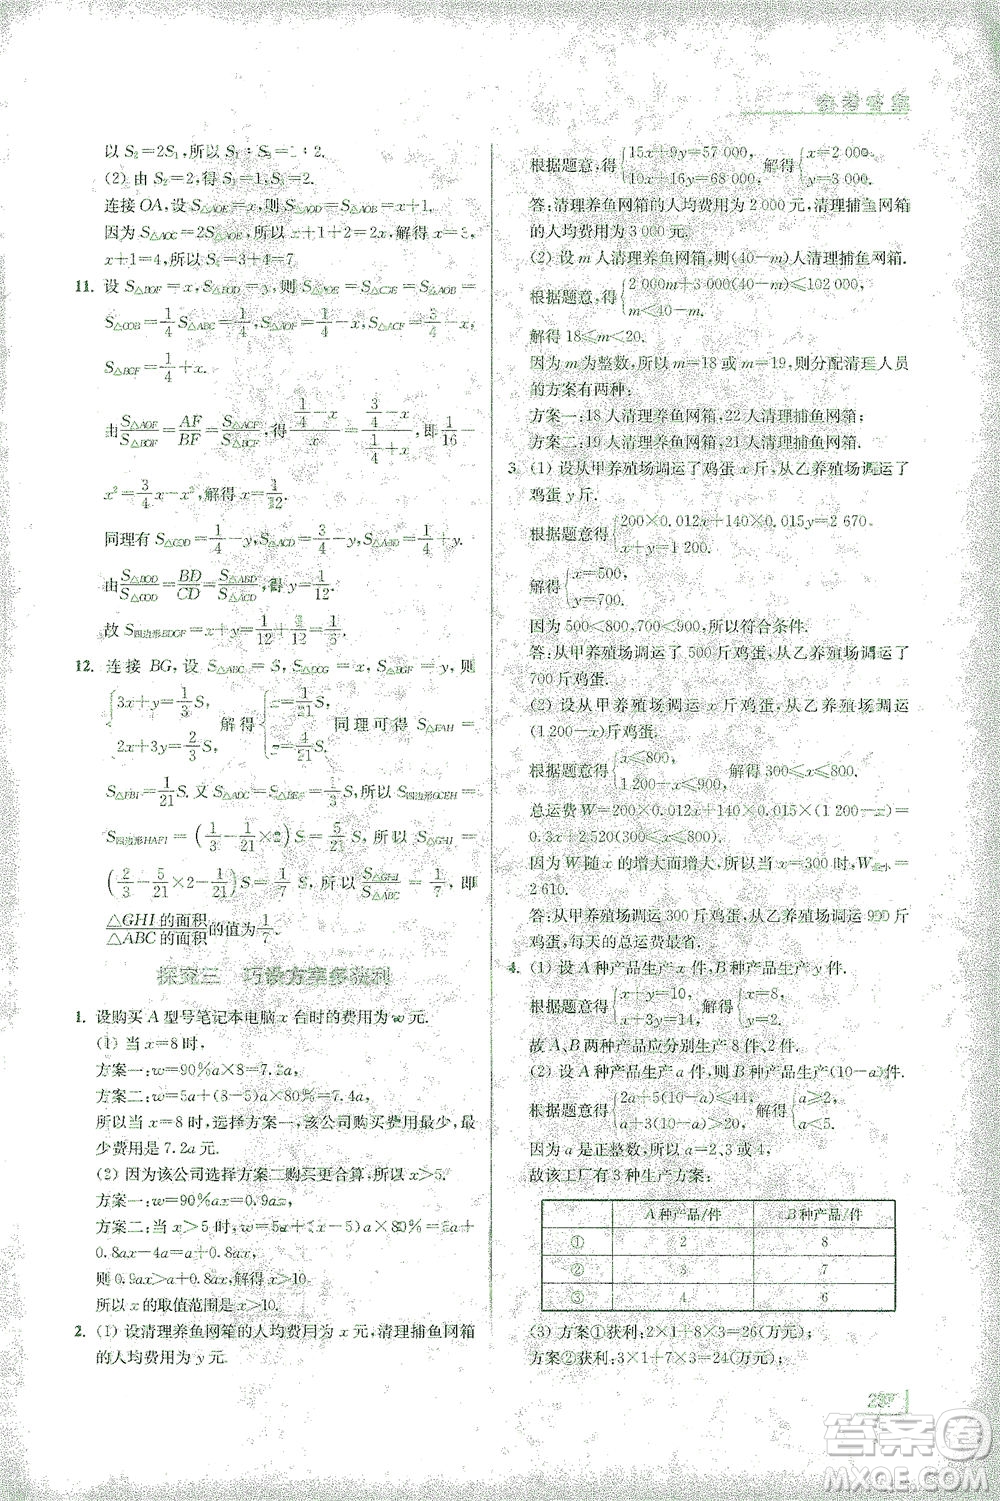 参考答案
以 S₂=2S₁,所以 S₁:S₂=1:2.
(2) 由 S₂=2,得 S₁=1,S₃=3.
连接 OA,设 S△AOE=x,则 S△AOD=S△AOB=x+1,
因为 S△AOC=2S△AOE,所以 x+1+2=2x,解得 x=3,
x+1=4,所以 S₄=3+4=7
11. 设 S△BGF=x,S△BGD=y,则
S△ABC=1/4,S△AOF=1/4-x,S△ACF=3/4-x,
S△BCF=1/4+x.
由 S△AOF/S△BOF=AF/BF=S△ACF/S△BCF,得 (1/4-x)/x=(3/4-x)/(1/4+x),即 1/16-
x²=3/4x-x²,解得 x=1/12.
同理有 S△COD=1/4-y,S△ACD=3/4-y,S△ABD=1/4+y.
由 S△BOD/S△COD=BD/CD=S△ABD/S△ACD,得 y=1/12.
故 S四边形BDGF=x+y=1/12+1/12=1/6.
12. 连接 BG,设 S△ABC=S,S△DCG=x,S△BFG=y,则
{3x+y=1/3S, 2x+3y=2/3S, 解得 {x=1/21S, y=4/21S. 同理可得 S△EAH=
S△FBI=1/21S. 又 S△ADC=S△BEA=1/3S,所以 S四边形GCEH=
S四边形HAFI=(1/3-1/21×2)S=5/21S,所以 S△GHI=
(2/3-5/21×2-1/21)S=1/7S,所以 S△GHI/S△ABC=1/7,即
△GHI的面积/△ABC的面积 的值为1/7.
探究三 巧设方案多获利
1. 设购买 A 型号笔记本电脑 x 台时的费用为 w 元.
(1) 当 x=8时,
方案一:w=90%a×8=7.2a,
方案二:w=5a+(8-5)a×80%=7.4a,
所以当 x=8时,选择方案一,该公司购买费用最少,最
少费用是 7.2a 元.
(2) 因为该公司选择方案二购买更合算,所以 x>5.
方案一:w=90%ax=0.9ax,
方案二:当 x>5 时,w=5a+(x-5)a×80%=5a+
0.8ax-4a=a+0.8ax,
则 0.9ax>a+0.8ax,解得 x>10.
所以 x 的取值范围是 x>10.
2. (1) 设清理养鱼网箱的人均费用为 x 元,清理捕鱼网箱
的人均费用为 y 元.
根据题意,得{15x+9y=57 000, 10x+16y=68 000, 解得{x=2 000, y=3 000.
答:清理养鱼网箱的人均费用为 2 000 元,清理捕鱼网箱
的人均费用为 3 000 元.
(2) 设 m 人清理养鱼网箱,则(40-m)人清理捕鱼网箱.
根据题意,得{2 000m+3 000(40-m)≤102 000, m<40-m,
解得 18≤m<20.
因为 m 为整数,所以 m=18或 m=19,则分配清理人员
的方案有两种:
方案一:18 人清理养鱼网箱,22 人清理捕鱼网箱;
方案二:19 人清理养鱼网箱,21 人清理捕鱼网箱.
3. (1) 设从甲养殖场调运了鸡蛋 x 斤,从乙养殖场调运了
鸡蛋 y 斤.
根据题意得{200×0.012x+140×0.015y=2 670, x+y=1 200,
解得{x=500, y=700.
因为 500<800,700<900,所以符合条件.
答:从甲养殖场调运了 500 斤鸡蛋,从乙养殖场调运了
700 斤鸡蛋.
(2) 设从甲养殖场调运 x 斤鸡蛋,从乙养殖场调运
(1 200-x)斤鸡蛋.
根据题意得{x≤800, 1 200-x≤900, 解得 300≤x≤800.
总运费 W=200×0.012x+140×0.015×(1 200-x)=
0.3x+2 520(300≤x≤800).
因为 W 随 x 的增大而增大,所以当 x=300 时,W最小=
2 610.
答:从甲养殖场调运 300 斤鸡蛋,从乙养殖场调运 900 斤
鸡蛋,每天的总运费最省.
4. (1) 设 A 种产品生产 x 件,B 种产品生产 y 件.
根据题意,得{x+y=10, x+3y=14, 解得{x=8, y=2.
故 A、B 两种产品应分别生产 8 件、2 件.
(2) 设 A 种产品生产 a 件,则 B 种产品生产(10-a)件.
根据题意,得{2a+5(10-a)≤44, a+3(10-a)>20, 解得{a≥2, a<5.
因为 a 是正整数,所以 a=2、3 或 4,
故该工厂有 3 种生产方案:
A 种产品/件 B 种产品/件
① 2 8
② 3 7
③ 4 6
(3) 方案①获利:2×1+8×3=26(万元);
方案②获利:3×1+7×3=24(万元);
答案圈
MXQE.COM